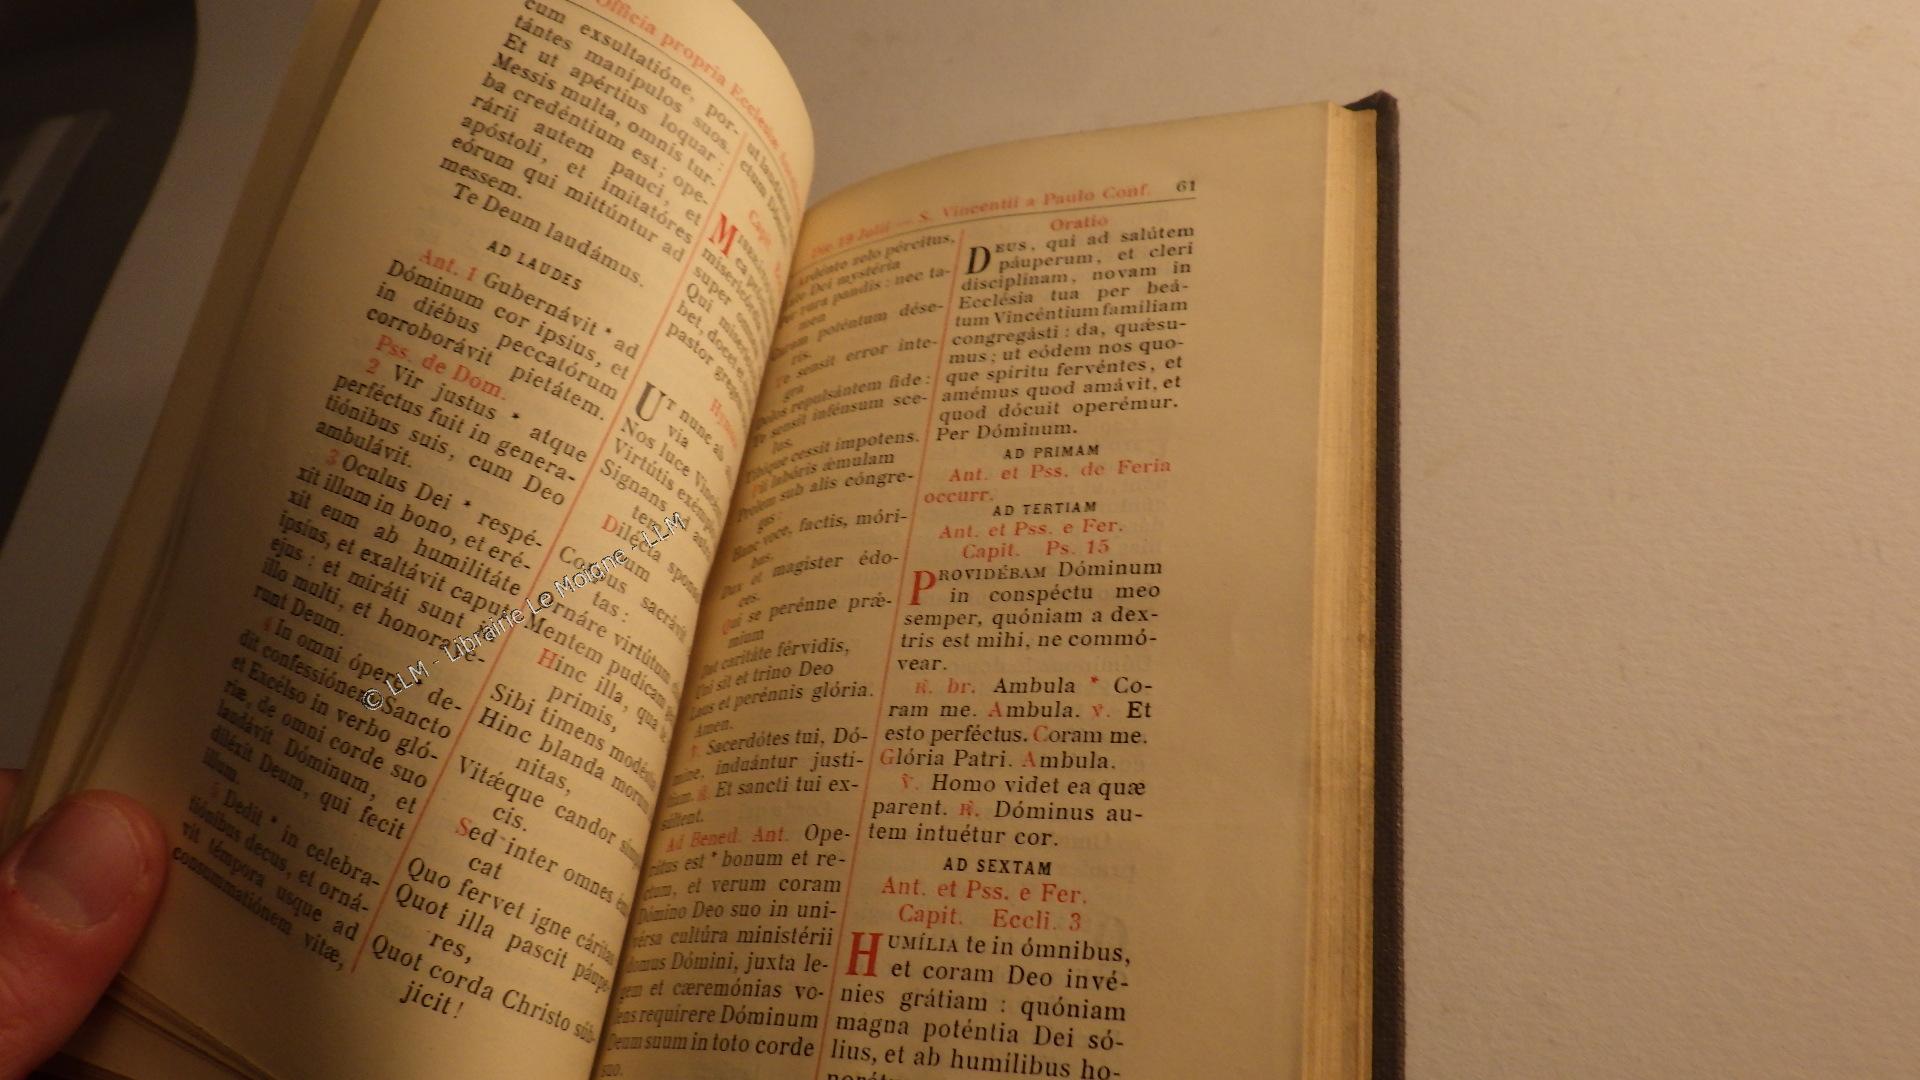 Officia propria Ecclesiæ
cum exsultatióne, por-
tántes manípulos suos.
Et ut apértius loquar :
Messis multa, omnis tur-
ba credéntium est ; ope-
rárii autem pauci, et
apóstoli, et imitatóres
eórum qui mittúntur ad
messem.
Te Deum laudámus.
AD LAUDES
Ant. 1 Gubernávit * ad
Dóminum cor ipsíus, et
in diébus peccatórum
corroborávit pietátem.
Pss. de Dom.
2 Vir justus * atque
perféctus fuit in genera-
tiónibus suis, cum Deo
ambulávit.
3 Oculus Dei * respé-
xit illum in bono, et eré-
xit eum ab humilitáte
ipsíus, et exaltávit caput
ejus : et miráti sunt in
illo multi, et honora
runt Deum.
4 In omni ópere * de-
dit confessiónem Sancto
et Excélso in verbo gló-
riæ, de omni corde suo
laudávit Dóminum, et
diléxit Deum, qui fecit
illum.
5 Dedit * in celebra-
tiónibus decus, et orná-
vit témpora usque ad
consummatiónem vitæ,
ut laudá
Capit
super
Qui
bet, docet
pastor
Hymnus
UT nunc
via
Nos luce
Virtútis
Signans
Dilécta
Corpus sacrávit
tas :
Ornáre virtútum
Mentem pudicam
Hinc illa, qua
primis,
Sibi timens
Hinc blanda morum
nitas,
Vitǽque candor
cis.
Sed inter omnes
cat
Quo fervet igne cáritas
Quot illa pascit páupe-
res,
Quot corda Christo súb-
jicit !
© LLM - Librairie Le Moigne - LLM
Die 19 Julii — S. Vincentii a Paulo Conf. 61
Ardénte zelo pércitus,
Dei mystéria
pandis : nec ta-
men
Coram poténtum dése-
ris.
Te sensit error inte-
gra
repulsántem fide :
Te sensit infénsum sce-
lus,
cessit impotens.
labóris ǽmulam
Prolem sub alis cóngre-
gas :
Hanc voce, factis, móri-
bus,
Dux et magister édo-
ces.
Qui se perénne prǽ-
mium
Dat caritáte férvidis,
Qui sit et trino Deo
Laus et perénnis glória.
Amen.
℣. Sacerdótes tui, Dó-
mine, induántur justí-
tiam. ℟. Et sancti tui ex-
súltent.
Ad Bened. Ant. Ope-
rátus est * bonum et re-
ctum, et verum coram
Dómino Deo suo in uni-
vérsa cultúra ministérii
domus Dómini, juxta le-
gem et cæremónias vo-
lens requirere Dóminum
Deum suum in toto corde
suo.
Oratio
DEUS, qui ad salútem
páuperum, et cleri
disciplinam, novam in
Ecclésia tua per beá-
tum Vincéntium familiam
congregásti : da, quǽsu-
mus ; ut eódem nos quo-
que spíritu fervéntes, et
amémus quod amávit, et
quod dócuit operémur.
Per Dóminum.
AD PRIMAM
Ant. et Pss. de Feria
occurr.
AD TERTIAM
Ant. et Pss. e Fer.
Capit. Ps. 15
PROVIDÉBAM Dóminum
in conspéctu meo
semper, quóniam a dex-
tris est mihi, ne commó-
vear.
℟. br. Ambula * Co-
ram me. Ambula. ℣. Et
esto perféctus. Coram me.
Glória Patri. Ambula.
℣. Homo videt ea quæ
parent. ℟. Dóminus au-
tem intuétur cor.
AD SEXTAM
Ant. et Pss. e Fer.
Capit. Eccli. 3
HUMÍLIA te in ómnibus,
et coram Deo invé-
nies grátiam : quóniam
magna poténtia Dei só-
lius, et ab humílibus ho-